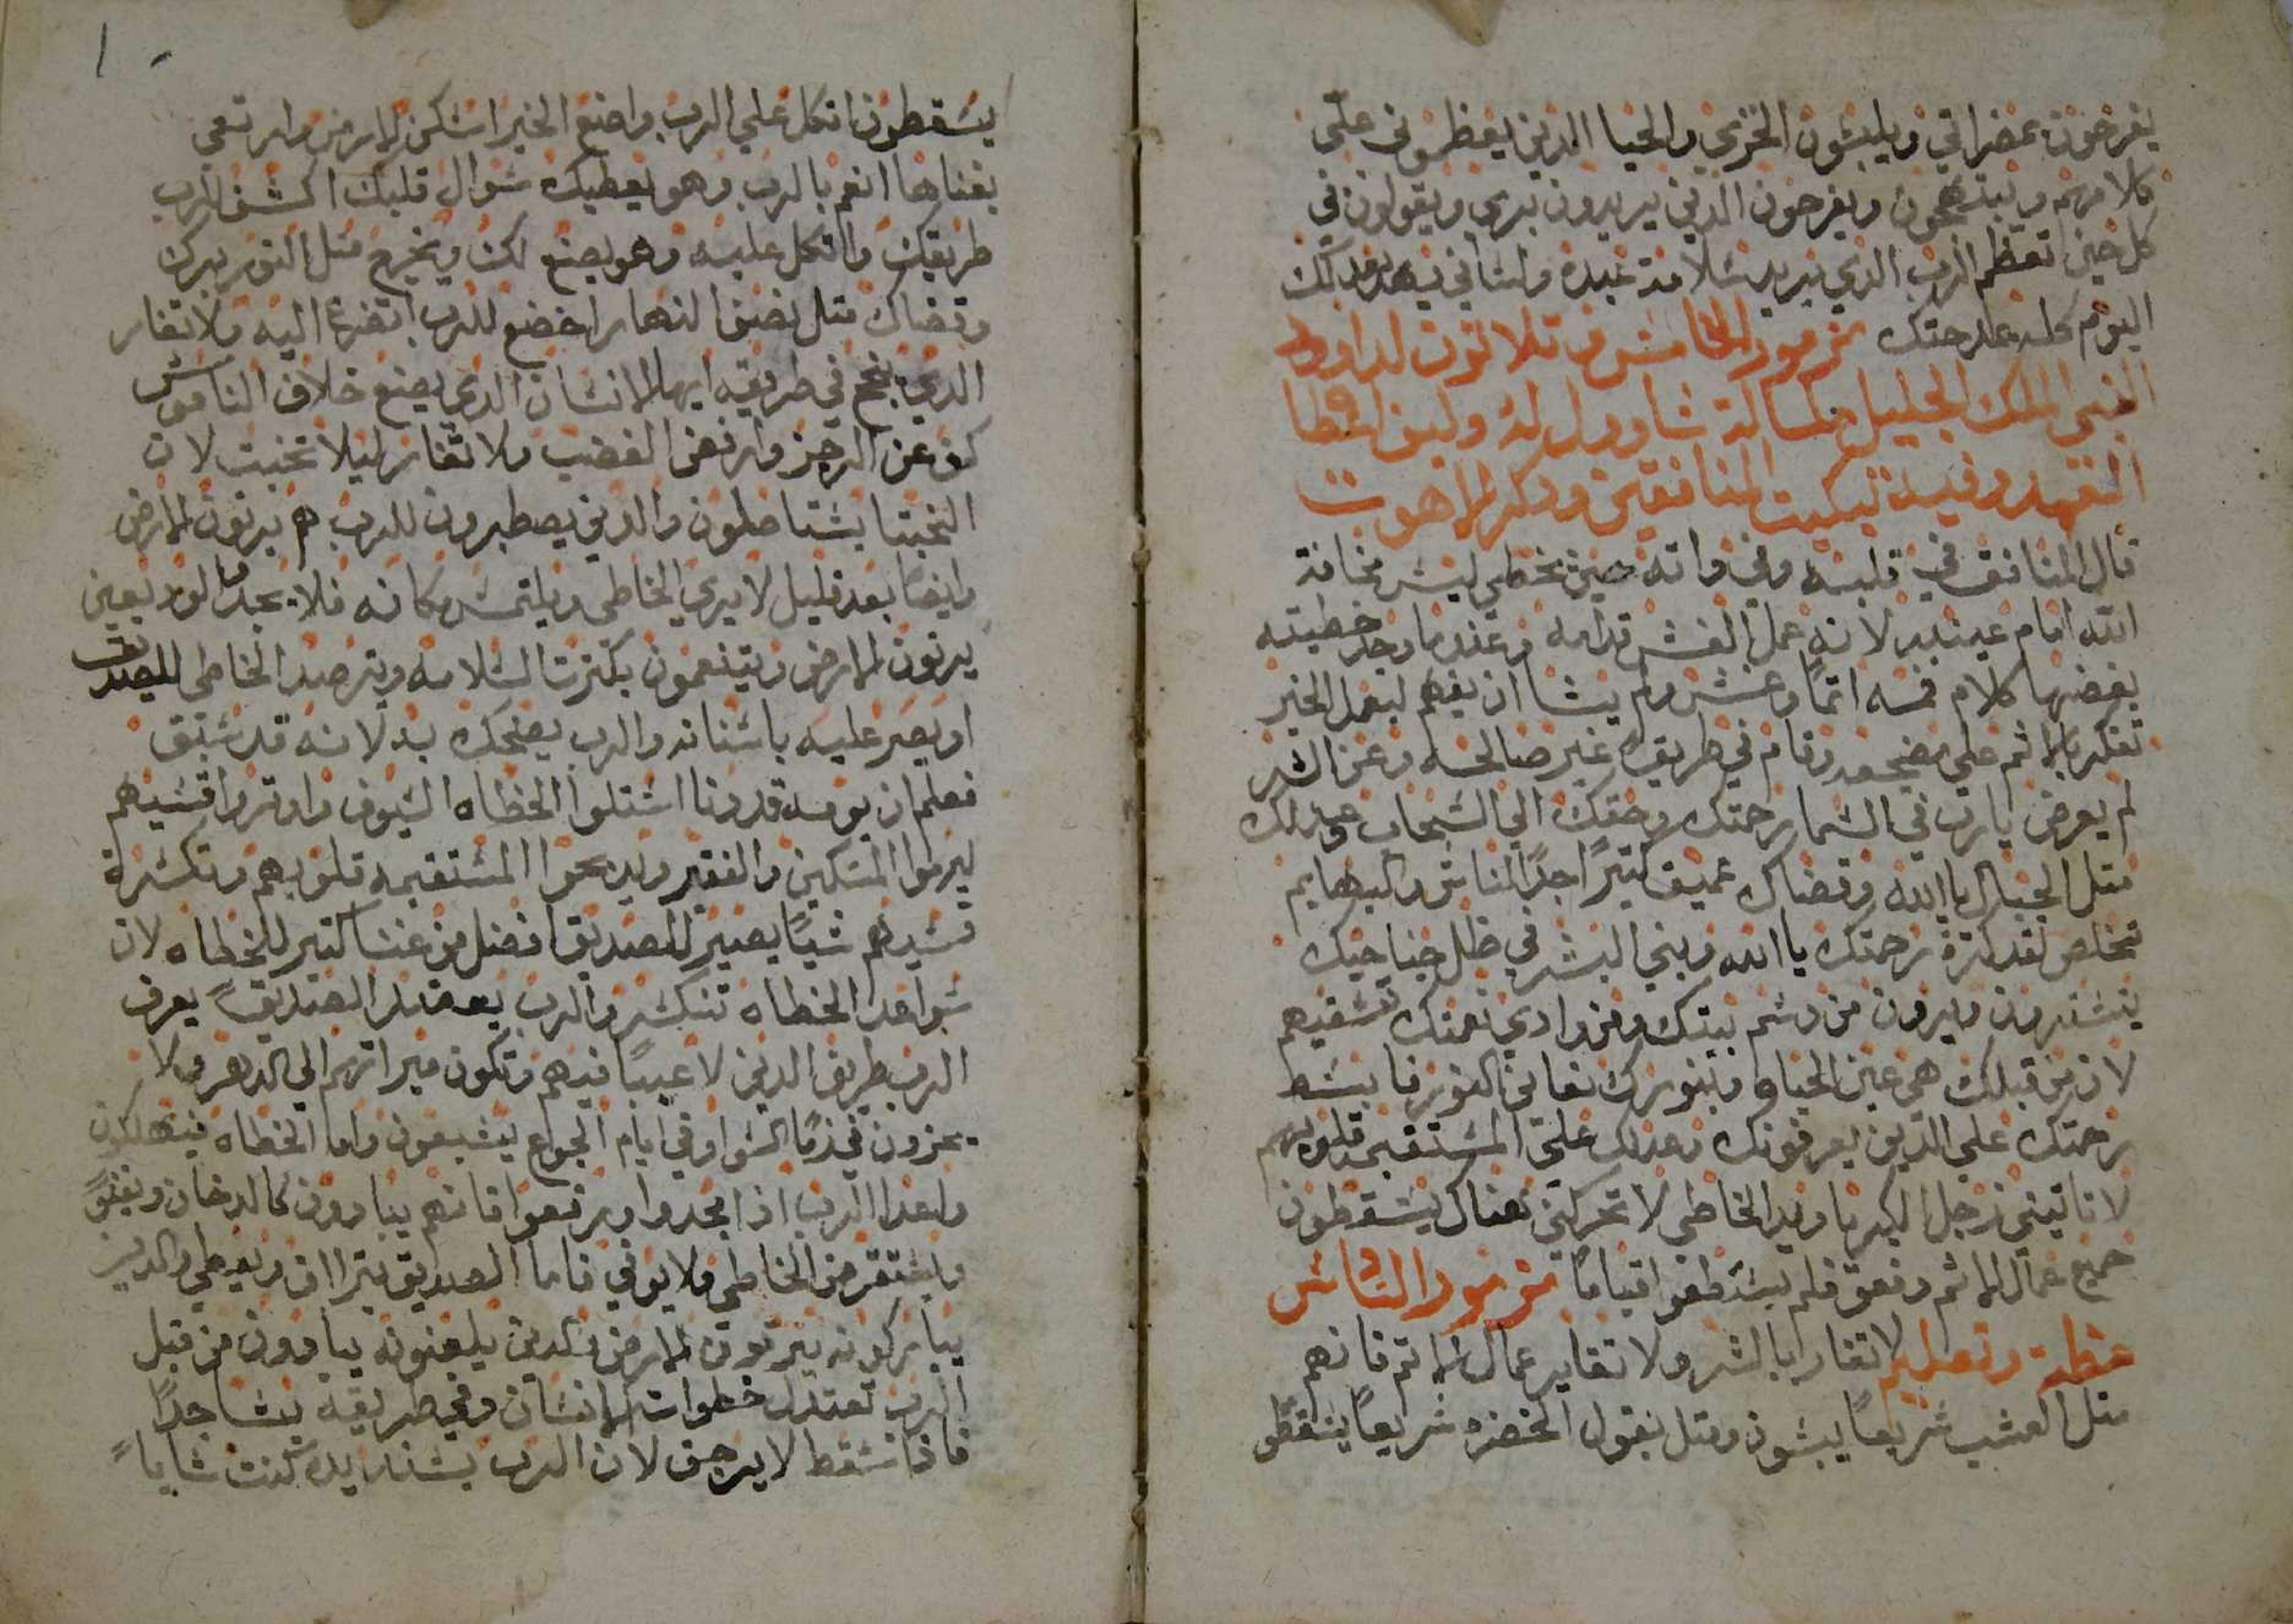 يفرحون بمضراتي ويلبسون الخزي والحيا الدين يعظمون علي
كلامهم ويبتهجون ويفرحون الدين يريدون بري ويقولون في
كل حين تعظم الرب الدي يريد سلامة عبده ولساني يهد بعدلك
اليوم كله بمدحتك مزمور الخامس و تلاتون لداوود
النبي الملك الجليل شاوول له
التعهد وفيه تبكيت المنافقين ودكر اللاهوت
قال المنافق في قلبه وفي داته حين يخطي ليس مخافة
الله امام عينيه لانه عمل الغش قدامه وعندما وجد خطيته
يغضها كلام فمه اتمًا وغش ولم يشا ان يفهم ليعمل الخير
تفكر بالاتم علي مضجعه وقام في طريق غير صالحه وعن الشر
لم يعرض يارب في السما رحمتك وحقك الي السحاب وعدلك
متل الجبال يا الله وقضاك عميق كتيرًا جدًا الناس والبهايم
تخلص لقد كترة رحمتك يا الله وبني البشر في ظل جناحيك
يستترون ويروون من دسم بيتك ومن وادي نعمتك تسقيهم
لان من قبلك هي عين الحياه وبنورك نعاين النور فابسط
رحمتك علي الدين يعرفونك وعدلك علي المستقيمه قلوبهم
لا تاتيني رجل الكبريا ويد الخاطي لا تحركني هناك يسقطون
جميع عمال الاتم دفعو فلم يستطعوا قيامًا مزمور السادس
عظة وتعليم لا تغار بالشر ولا تغاير عمال الاتم فانهم
متل العشب سريعًا يبسون ومتل بقول الخضره سريعًا يسقطو
يسقطون اتكل علي الرب واصنع الخير اسكن الارض وارتعي
بغناها انعم بالرب وهو يعطيك سوال قلبك اكشف للرب
طريقك واتكل عليه وهو يصنع لك ويخرج متل النور برك
وقضاك متل نصف النهار اخضع للرب اتضرع اليه ولا تغار
الدي ينجح في طريقه ايها الانسان الدي يصنع خلاف الناموس
كف عن الرجز وارفض الغضب ولا تغار ليلا تخبت لان
الخبتا يستاصلون والدين يصطبرون للرب هم يرتون الارض
وايضًا بعد قليل لا يري الخاطي ويلتمس مكانه فلا يجد الوديعين
يرتون الارض ويتنعمون بكترت السلامه ويترصد الخاطي للصديق
او يصر عليه باسنانه والرب يضحك به لانه قد سبق
فعلم ان يومه قد دنا استلوا الخطاه السيوف واوتروا قسيهم
ليرموا المسكين والفقير ويدبحوا المستقيمه قلوبهم وتكسرة
قسيهم شيًا يسير للصديق افضل من غنا كتير للخطاه لان
سواعد الخطاه تنكسر والرب يعضد الصديقًا يعرف
الرب طريق الدين لا عيبًا فيهم وتكون ميراتهم الي الدهر ولا
يخزون في زمًا السوا وفي ايام الجوع يشبعون واما الخطاه فيهلكون
واعدا الرب اذا مجدوا وارتفعوا فانهم يبادون كالدخان ويفنو
يستقرض الخاطي ولا يوفي فاما الصديق يتراف ويعطي والدين
يباركونه يرتون الارض والدين يلعنونه يبادون من قبل
الرب تعتدل خطوات الانسان وفي طريقه يشا جدًا
فاذا سقط لا يرجف لان الرب يسند يده كنت شابًا